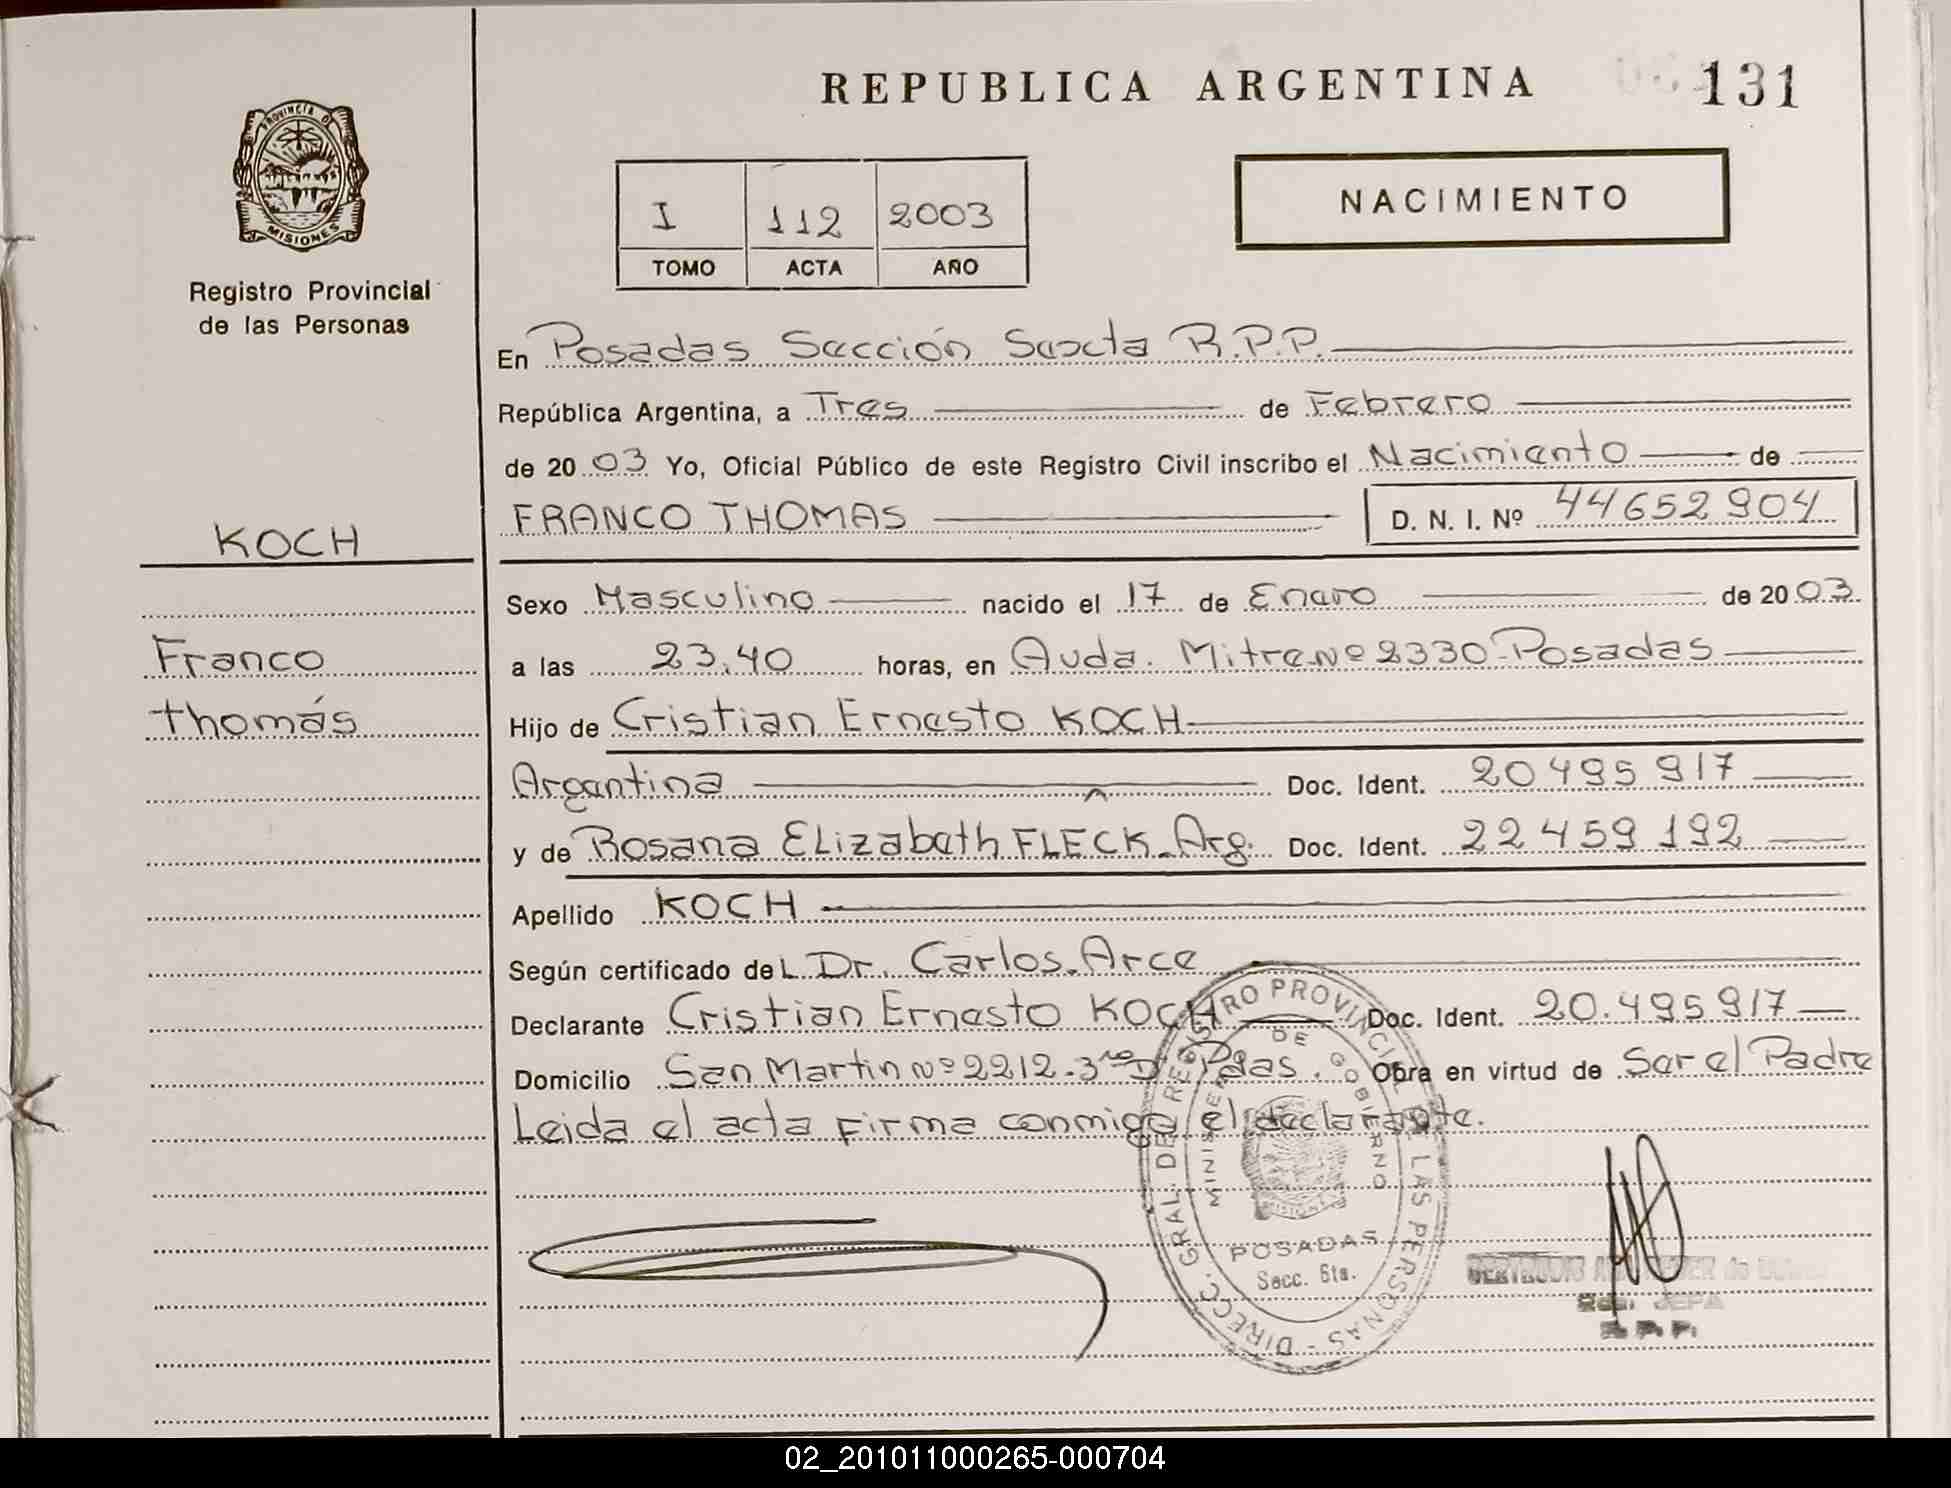 REPUBLICA ARGENTINA
131
PROVINCIA DE
MISIONES
Registro Provincial
de las Personas
I 112 2003
TOMO ACTA AÑO
NACIMIENTO
En Posadas Sección Sexta R.P.P.
República Argentina, a Tres de Febrero
de 2003 Yo, Oficial Público de este Registro Civil inscribo el Nacimiento de
FRANCO THOMAS D. N. I. Nº 44652904
KOCH
Franco
Thomás
Sexo Masculino nacido el 17 de Enero de 2003
a las 23.40 horas, en Avda. Mitre Nº 2330-Posadas
Hijo de Cristian Ernesto KOCH
Argentina Doc. Ident. 20495917
y de Rosana Elizabeth FLECK-Arg. Doc. Ident. 22459192
Apellido KOCH
Según certificado del Dr. Carlos Arce
Declarante Cristian Ernesto KOCH Doc. Ident. 20.495917
Domicilio San Martin Nº 2212-3ro D Pdas. Obra en virtud de Ser el Padre
Leida el acta Firma conmigo el declarante.
DIRECC. GRAL. DE REGISTRO PROVINCIAL DE LAS PERSONAS
MINISTERIO DE GOBIERNO
MISIONES
POSADAS
Secc. 6ta.
GERTRUDIS
JEFA
R.P.P.
02_201011000265-000704